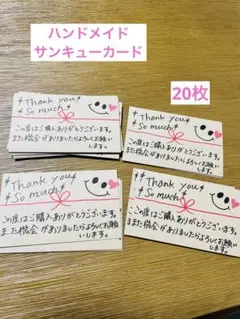 ハンドメイド
サンキューカード
20枚
Thank you
So much
この度はご購入ありがとうございます。
また機会がありましたらよろしくお願い
します。
Thank you
So much
この度はご購入ありがとうございます。
また機会がありましたらよろしくお願い
します。
Thank you
So much
この度はご購入ありがとうございます。
また機会がありましたらよろしくお願い
します。
Thank you
So much
この度はご購入ありがとうございます。
また機会がありましたらよろしくお願
いします。